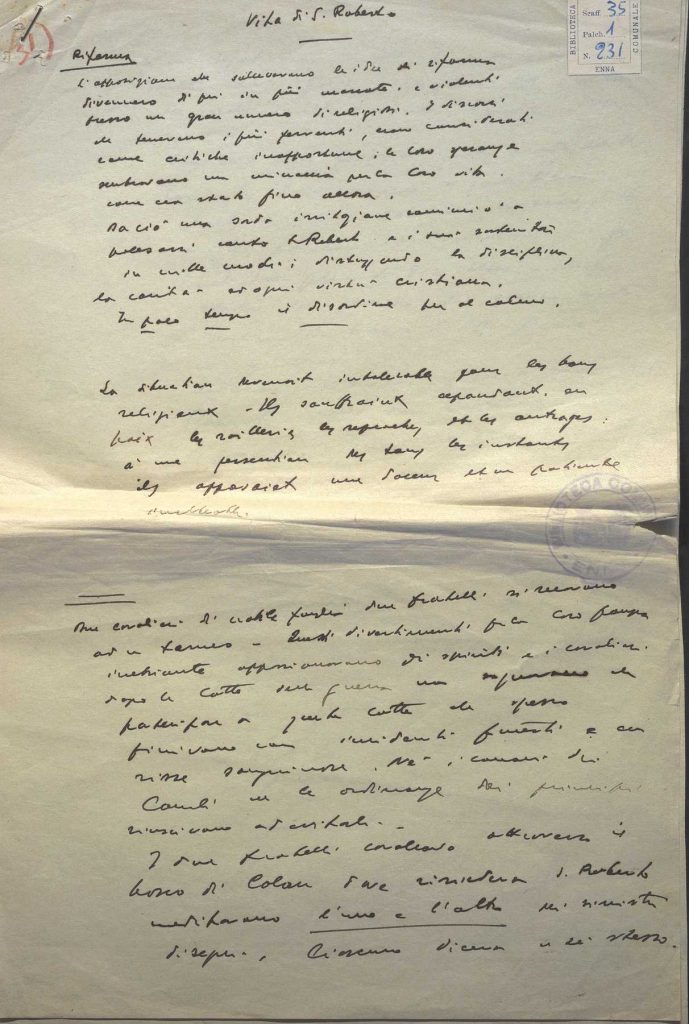 Vita di S. Roberto
BIBLIOTECA
COMUNALE
Scaff. 35
Palch. 1
N. 231
ENNA
Riforma
L'opposizione che sollevarono le idee di riforma
divennero di più in più marcate e violenti
presso un gran numero di religiosi. I discorsi
che tenevano i più ferventi, erano considerati
come critiche inopportune, le loro speranze
sembravano una minaccia per la loro vita
come era stato fino allora.
una sorda irritazione cominciò a
contro S. Roberto e i suoi sostenitori
in mille modi: distruggendo la disciplina,
la carità ad ogni virtù cristiana.
In poco tempo il disordine fu al colmo.
La situation devenait intolerable pour les bons
religieux - Ils souffraient cependant en
paix les railleries les reproches et les outrages:
à une persecution de tous les instants
ils une douceur et un patience
BIBLIOTECA
Due cavalieri di nobile famiglia due fratelli si recavano
ad un torneo - Questi divertimenti per la loro
inebriante appassionavano gli spiriti e i cavalieri
dopo le lotte della guerra non che
partecipare a queste lotte che spesso
finivano con incidenti funesti e con
risse sanguinose. Nè i canoni dei
Concili nè le ordinanze dei principi
riuscivano ad evitarli. -
I due fratelli attraverso il
bosco di Colan dove risiedeva S. Roberto
meditavano l'uno e l'altro dei sinistri
disegni, Ciascuno diceva a se stesso.